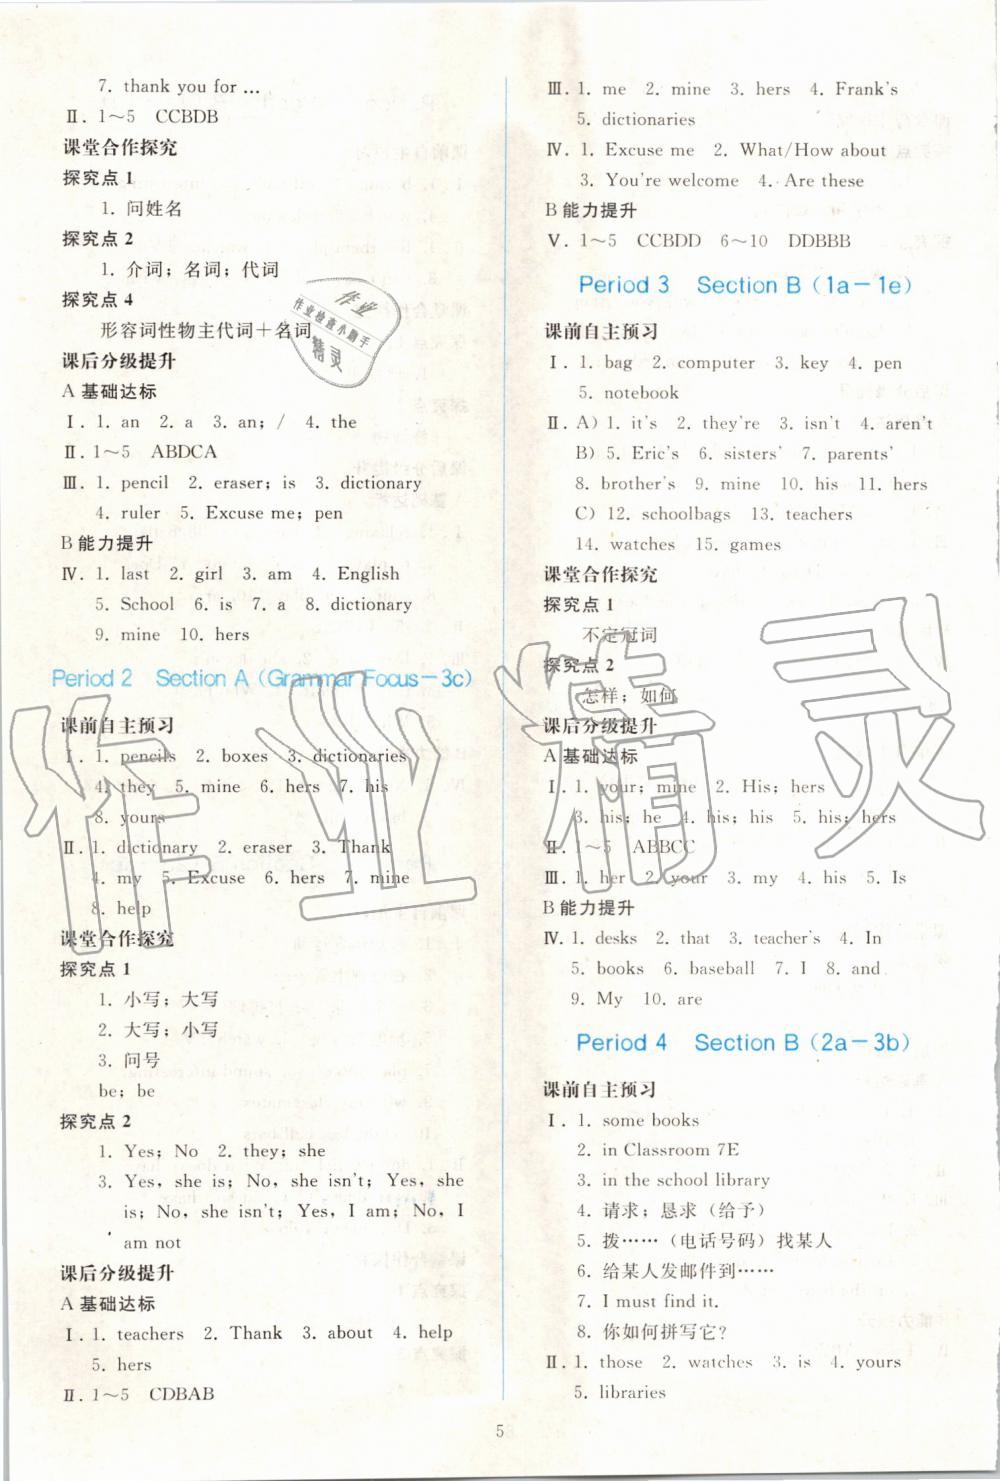 7. thank you for …
Ⅱ. 1～5 CCBDB
课堂合作探究
探究点 1
1. 问姓名
探究点 2
1. 介词；名词；代词
探究点 4
形容词性物主代词＋名词
课后分级提升
A 基础达标
Ⅰ. 1. an 2. a 3. an; / 4. the
Ⅱ. 1～5 ABDCA
Ⅲ. 1. pencil 2. eraser; is 3. dictionary
4. ruler 5. Excuse me; pen
B 能力提升
Ⅳ. 1. last 2. girl 3. am 4. English
5. School 6. is 7. a 8. dictionary
9. mine 10. hers
Period 2 Section A (Grammar Focus－3c)
课前自主预习
Ⅰ. 1. pencils 2. boxes 3. dictionaries
4. they 5. mine 6. hers 7. his
8. yours
Ⅱ. 1. dictionary 2. eraser 3. Thank
4. my 5. Excuse 6. hers 7. mine
8. help
课堂合作探究
探究点 1
1. 小写；大写
2. 大写；小写
3. 问号
be; be
探究点 2
1. Yes; No 2. they; she
3. Yes, she is; No, she isn't; Yes, she
is; No, she isn't; Yes, I am; No, I
am not
课后分级提升
A 基础达标
Ⅰ. 1. teachers 2. Thank 3. about 4. help
5. hers
Ⅱ. 1～5 CDBAB
Ⅲ. 1. me 2. mine 3. hers 4. Frank's
5. dictionaries
Ⅳ. 1. Excuse me 2. What/How about
3. You're welcome 4. Are these
B 能力提升
Ⅴ. 1～5 CCBDD 6～10 DDBBB
Period 3 Section B (1a－1e)
课前自主预习
Ⅰ. 1. bag 2. computer 3. key 4. pen
5. notebook
Ⅱ. A) 1. it's 2. they're 3. isn't 4. aren't
B) 5. Eric's 6. sisters' 7. parents'
8. brother's 9. mine 10. his 11. hers
C) 12. schoolbags 13. teachers
14. watches 15. games
课堂合作探究
探究点 1
不定冠词
探究点 2
怎样；如何
课后分级提升
A 基础达标
Ⅰ. 1. your; mine 2. His; hers
3. his; he 4. his; his 5. his; hers
Ⅱ. 1～5 ABBCC
Ⅲ. 1. her 2. your 3. my 4. his 5. Is
B 能力提升
Ⅳ. 1. desks 2. that 3. teacher's 4. In
5. books 6. baseball 7. I 8. and
9. My 10. are
Period 4 Section B (2a－3b)
课前自主预习
Ⅰ. 1. some books
2. in Classroom 7E
3. in the school library
4. 请求；恳求（给予）
5. 拨……（电话号码）找某人
6. 给某人发邮件到……
7. I must find it.
8. 你如何拼写它？
Ⅱ. 1. those 2. watches 3. is 4. yours
5. libraries
作业
作业检查小助手
精灵
作业精灵